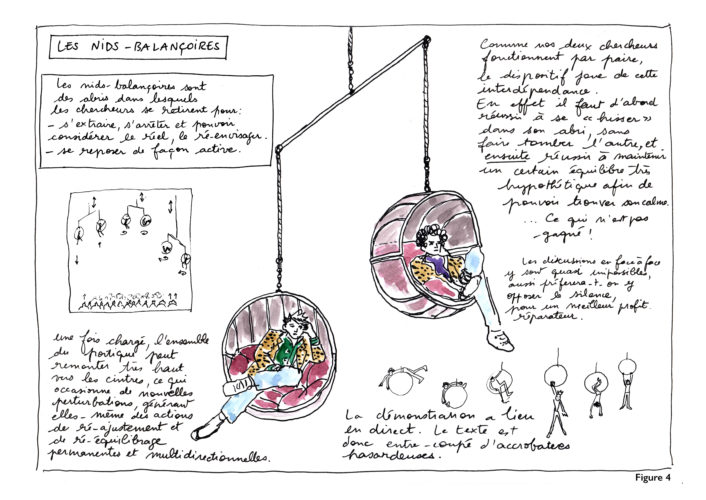 LES NIDS-BALANÇOIRES
Les nids-balançoires sont
des abris dans lesquels
les chercheurs se retirent pour:
- s'extraire, s'arrêter et pouvoir
considérer le réel, le ré-envisager.
- se reposer de façon active.
Comme nos deux chercheurs
fonctionnent par paire,
le dispositif joue de cette
interdépendance.
En effet il faut d'abord
réussir à se « hisser »
dans son abri, sans
faire tomber l'autre, et
ensuite réussir à maintenir
un certain équilibre très
hypothétique afin de
pouvoir trouver son calme.
... Ce qui n'est pas
gagné !
Les discussions en face à face
y sont quasi impossibles,
aussi préfèrera-t-on y
opposer le silence,
pour un meilleur profit
réparateur.
une fois chargé, l'ensemble
du portique peut
remonter très haut
vers les cintres, ce qui
occasionne de nouvelles
perturbations, générant
elles-même des actions
de ré-ajustement et
de ré-équilibrage
permanentes et multidirectionnelles.
La démonstration a lieu
en direct. Le texte est
donc entre-coupé d'accrobaties
hasardeuses.
Figure 4